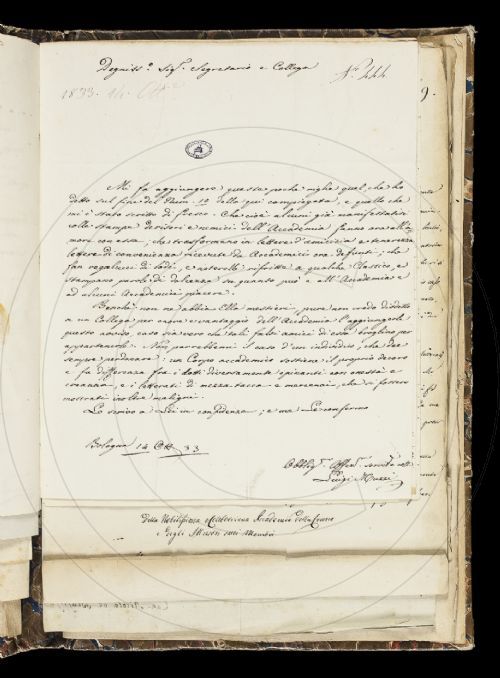 Degniss.º Sig.r Segretario e Collega
Nº 444
1833. 14. Ott.e
Mi fa aggiungere queste poche righe quel che ho
detto sul fine del Num. 10 della qui compiegata, e quello che
mi è stato scritto di fresco. Che cioè alcuni già manifestatisi
colle stampe derisori e nemici dell'Accademia fanno ora all'a-
more con essa; che trasformano in lettere d'amicizia e tenerezza
lettere di convenienza ricevute da Accademici ora defunti; che
fan regalucci di libri, e noterelle rifritte a qualche Classico, e
stampano paroline di dolcezza su quanto può e all'Accademia e
ad alcuni Accademici piacere.
Benchè non ne abbia Ella mestieri, pure non credo disdetto
a un Collega per onore e vantaggio dell'Accademia l'aggiungerle
questo avviso, caso sia vero che tali fubi amici di essa broglino per
appartenerle. Non parrebbemi il caso d'un individuo, che dee
sempre perdonare: un Corpo accademico sostiene il proprio decoro
e fa differenza fra i dotti diversamente opinanti con onestà e
creanza, e i letterati di mezza tacca e merennai, che si fossero
mostrati inoltre maligni.
Lo scrivo a Lei in confidenza; e me Le confermo
Bologna 14 Ott. 33
Obblig.º Affez.º servitore
Luigi Muzzi
Della Nobilissima Accademia della Crusca
e degli Illustri suoi Membri